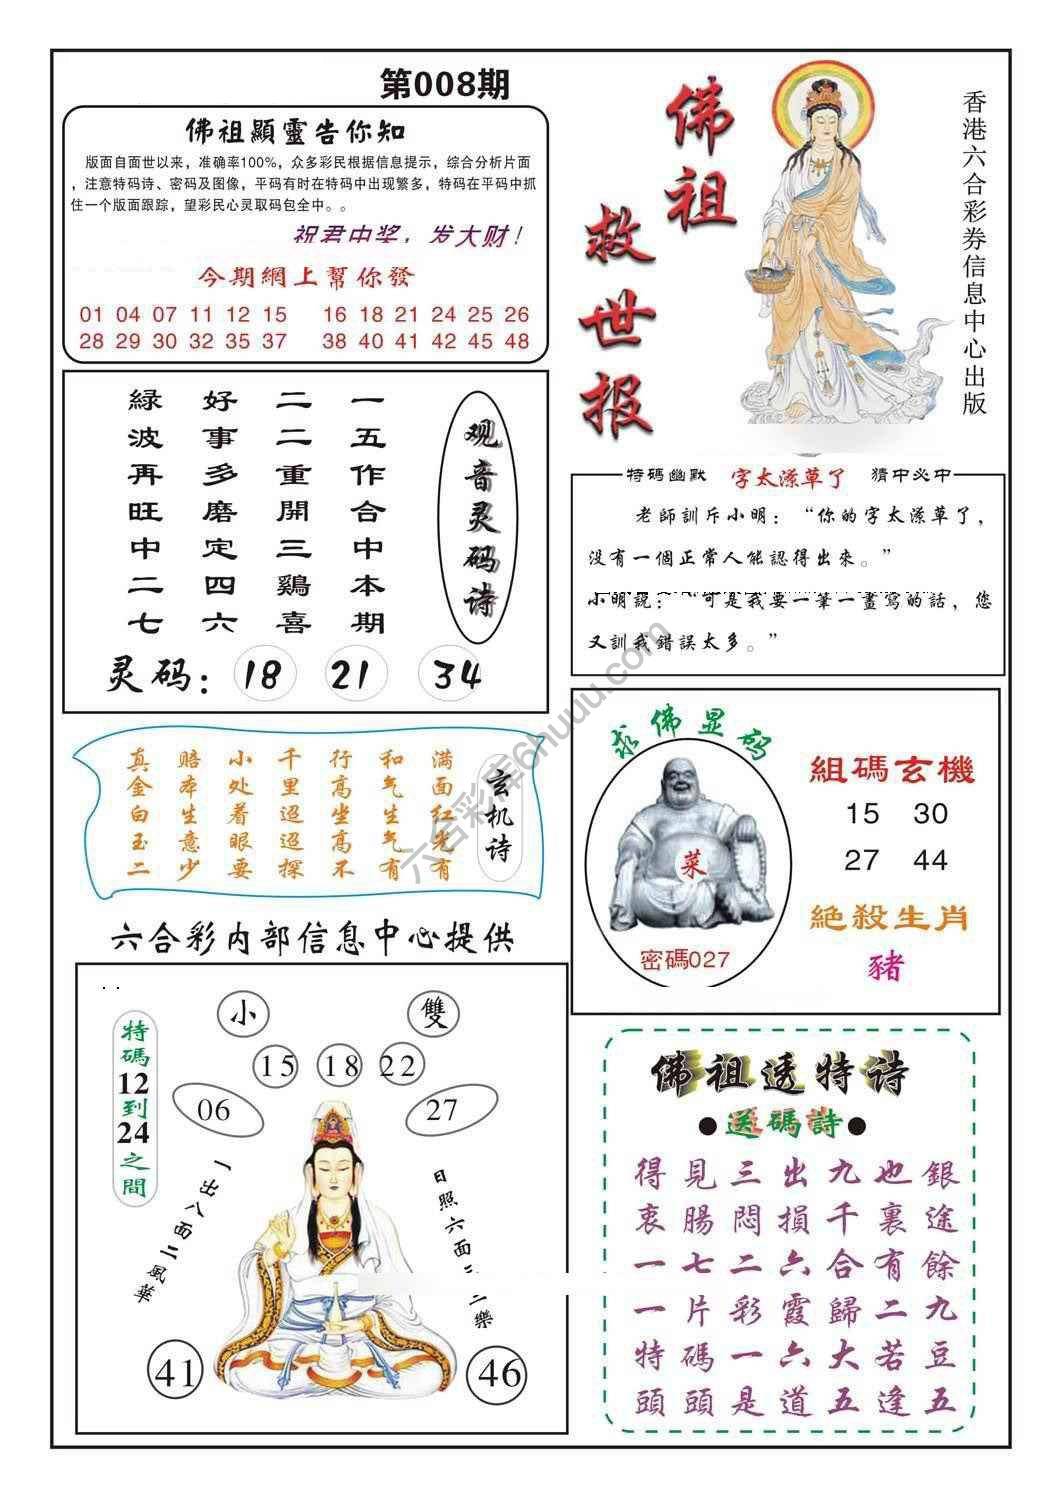 第008期
佛祖顯靈告你知
版面自面世以来，准确率100%，众多彩民根据信息提示，综合分析片面
，注意特码诗、密码及图像，平码有时在特码中出现繁多，特码在平码中抓
住一个版面跟踪，望彩民心灵取码包全中。。
祝君中奖，发大财！
今期網上幫你發
01 04 07 11 12 15 16 18 21 24 25 26
28 29 30 32 35 37 38 40 41 42 45 48
佛祖
救世报
香港六合彩券信息中心出版
观音灵码诗
一五作合中本期
二二重開三鷄喜
好事多磨定四六
緑波再旺中二七
灵码：18 21 34
特碼幽默 字太潦草了 猜中必中
老師訓斥小明：“你的字太潦草了，
没有一個正常人能認得出來。”
小明説：“可是我要一筆一畫寫的話，您
又訓我錯誤太多。”
玄机诗
满面红光有
和气生气有
行高坐高不
千里迢迢探
小处着眼要
赔本生意少
真金白玉二
求佛显码
菜
密碼027
組碼玄機
15 30
27 44
絕殺生肖
豬
六合彩内部信息中心提供
特碼12到24之間
小 雙
15 18 22
06 27
一出八面二風華
日照六面三二樂
41 46
佛祖透特诗
●送碼詩●
得見三出九也銀
衷腸悶損千裏途
一七二六合有餘
一片彩霞歸二九
特碼一六大若豆
頭頭是道五逢五
六合彩库6huuu.com